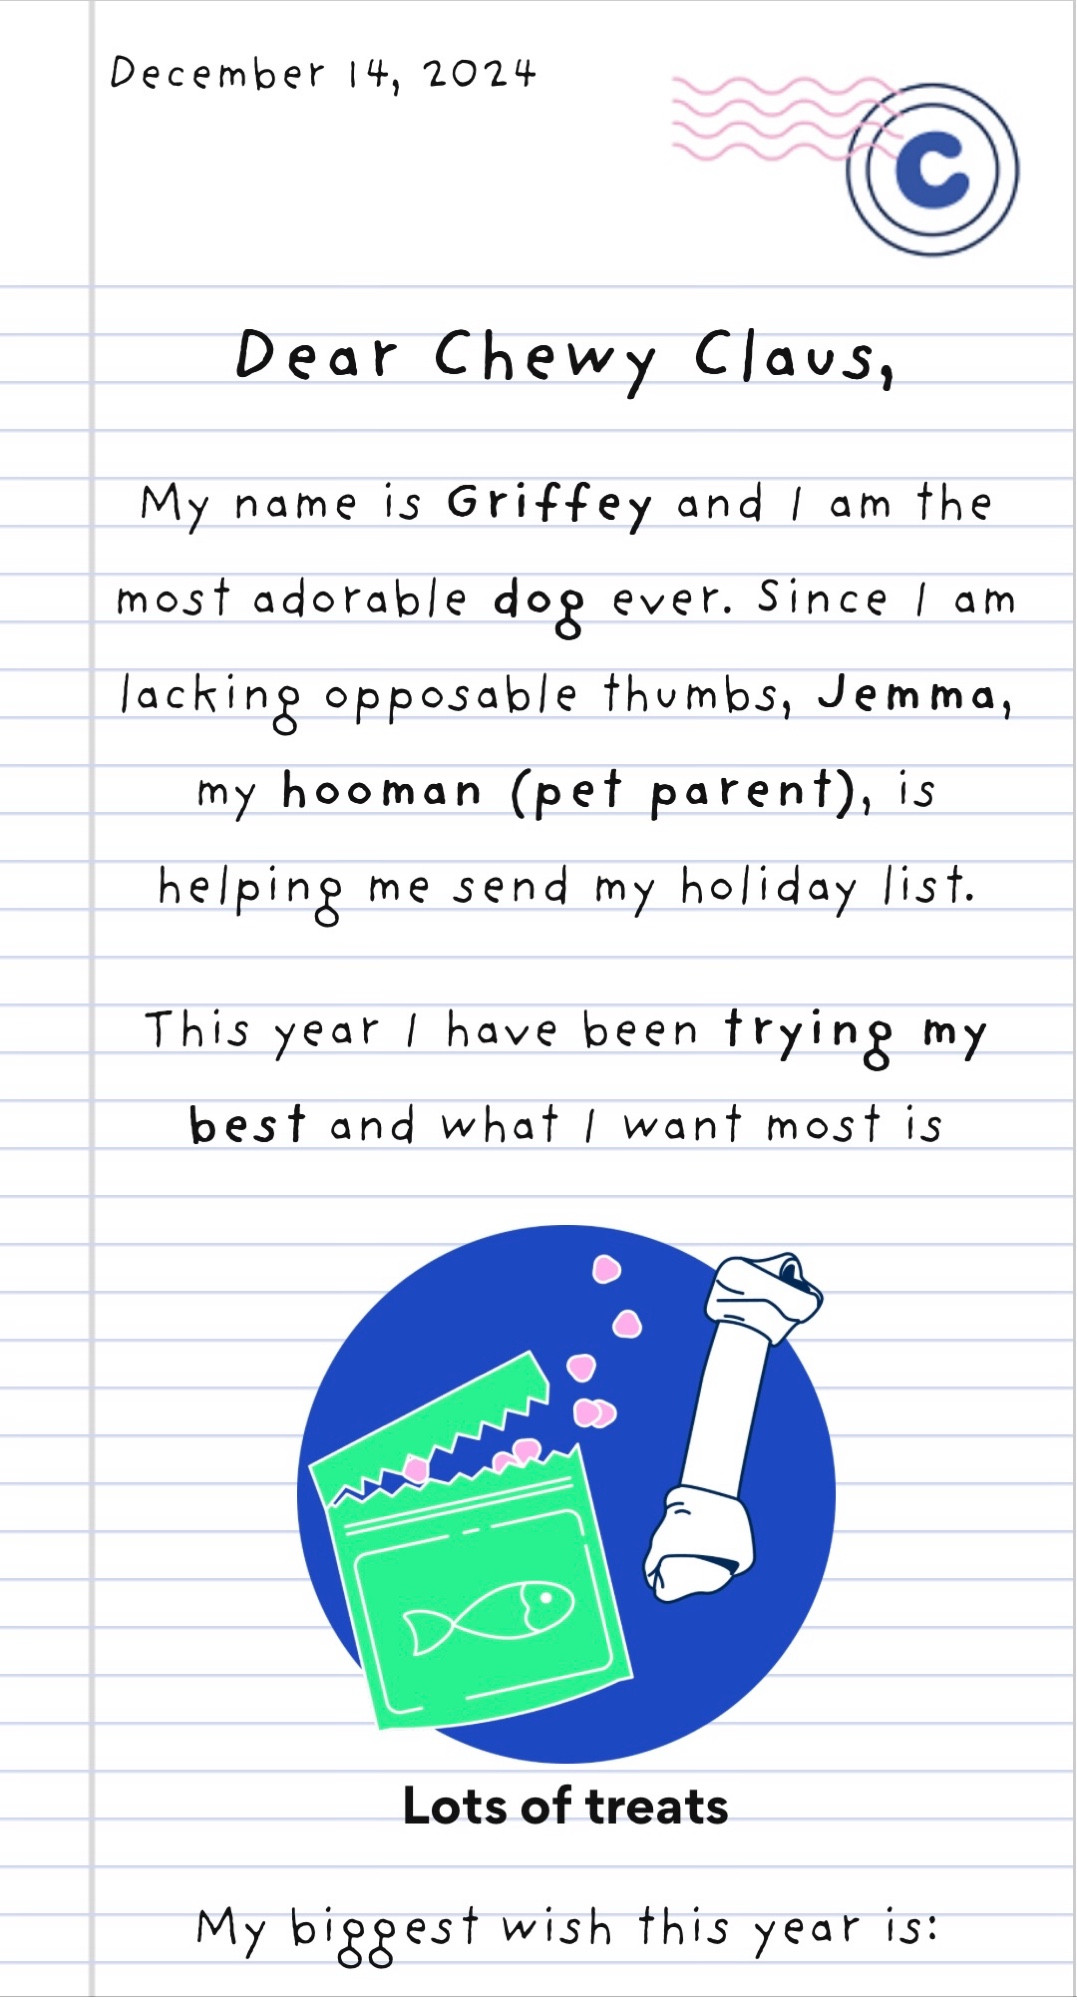 December 14, 2024
C
Dear Chewy Claus,
My name is Griffey and I am the
most adorable dog ever. Since I am
lacking opposable thumbs, Jemma,
my hooman (pet parent), is
helping me send my holiday list.
This year I have been trying my
best and what I want most is
Lots of treats
My biggest wish this year is: